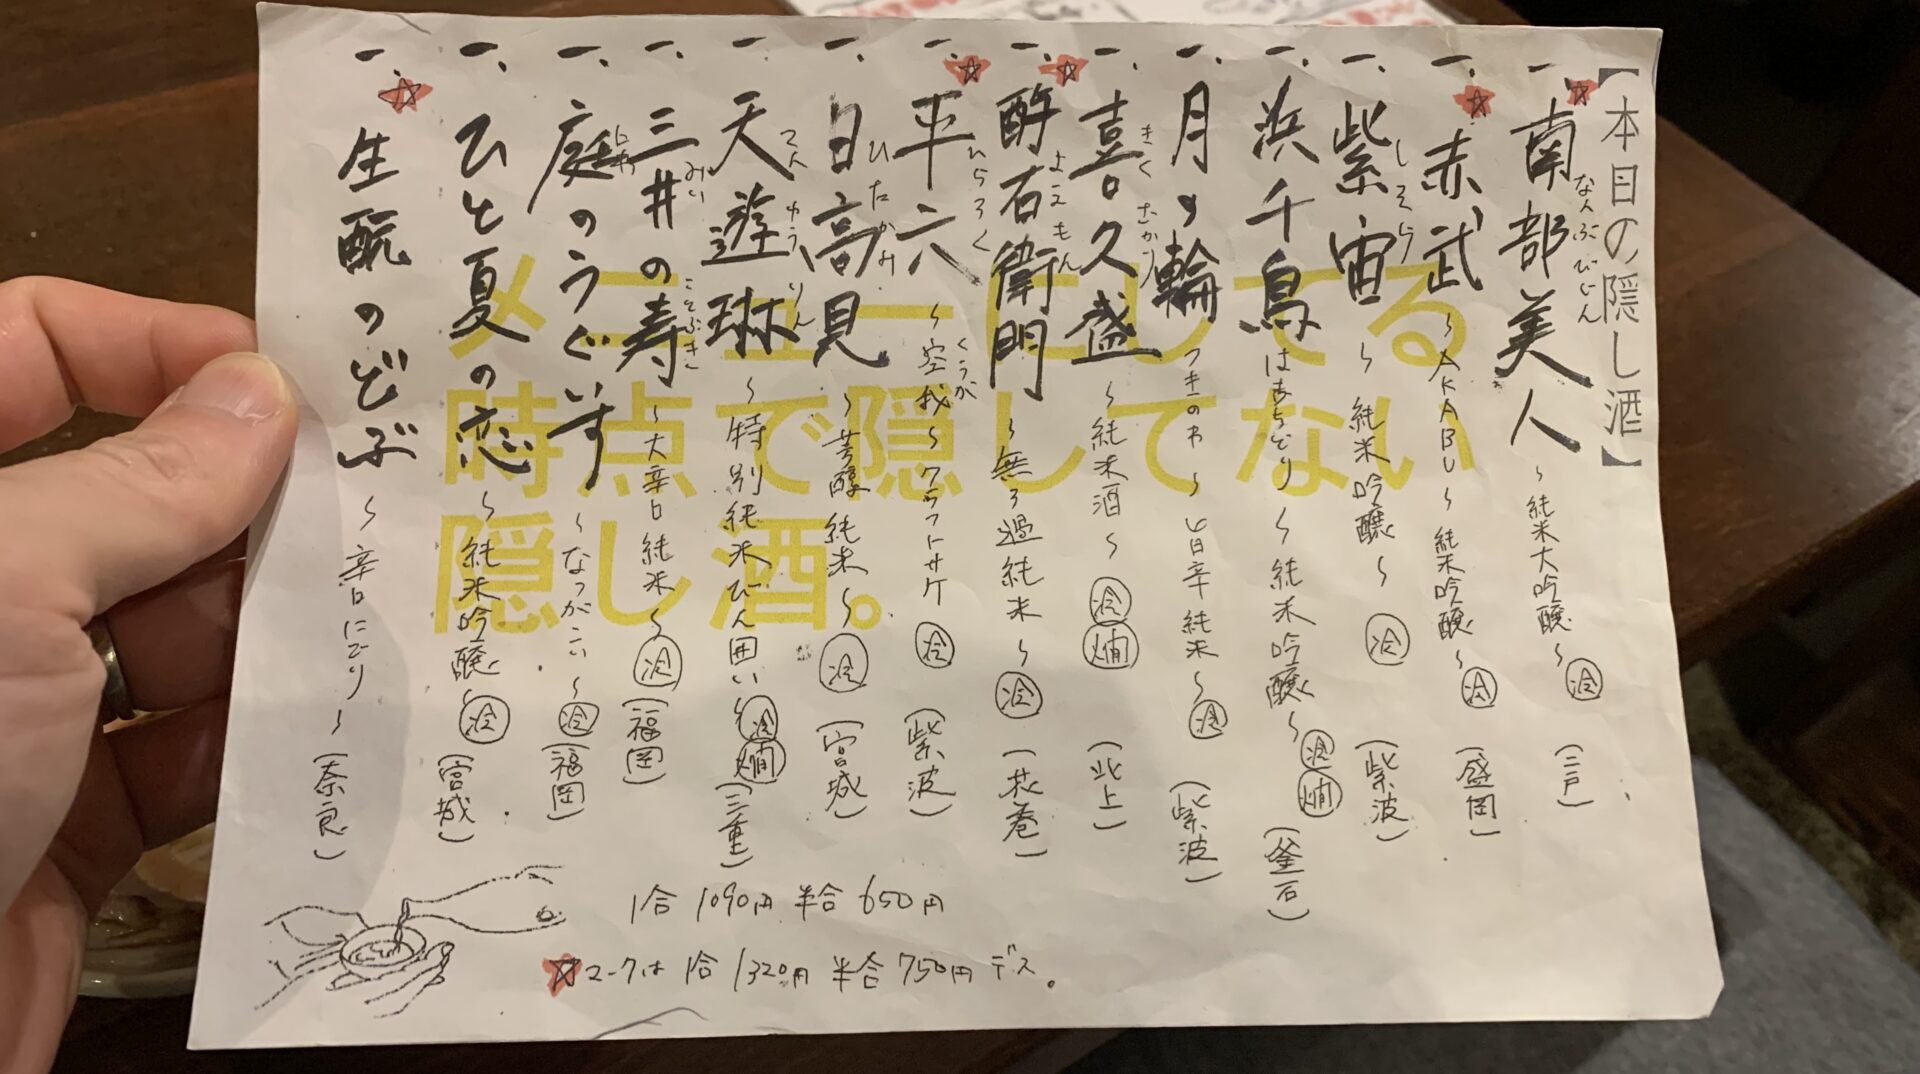 【本日の隠し酒】
一、☆南部美人 なんぶびじん 〜純米大吟醸〜 冷 (二戸)
一、☆赤武 〜AKABU〜純米吟醸〜 冷 (盛岡)
一、紫宙 しそら 〜純米吟醸〜 冷 (紫波)
一、浜千鳥 はまちどり 〜純米吟醸〜 冷 燗 (釜石)
一、月の輪 つきのわ 〜 七日辛 純米〜 冷 (紫波)
一、喜久盛 きくさかり 〜純米酒〜 冷 燗 (北上)
一、☆酔右衛門 よえもん 〜無ろ過純米〜 冷 (花巻)
一、☆平六 ひらろく 〜空我 くうが〜クラフトサケ 冷 (紫波)
一、日高見 ひたかみ 〜芳醇純米〜 冷 (宮城)
一、天遊琳 てんゆうりん 〜特別純米びん囲い〜 冷 燗 (三重)
一、三井の寿 みいのことぶき 〜大辛口純米〜 冷 (福岡)
一、庭のうぐいす にわ 〜なつがこい〜 冷 (福岡)
一、ひと夏の恋 〜純米吟醸〜 冷 (宮城)
一、☆生酛のどぶ 〜辛口にごり〜 (奈良)
メニューにしてる
時点で隠してない
隠し酒。
1合 1090円 半合 650円
☆マークは 1合 1320円 半合 750円 デス。